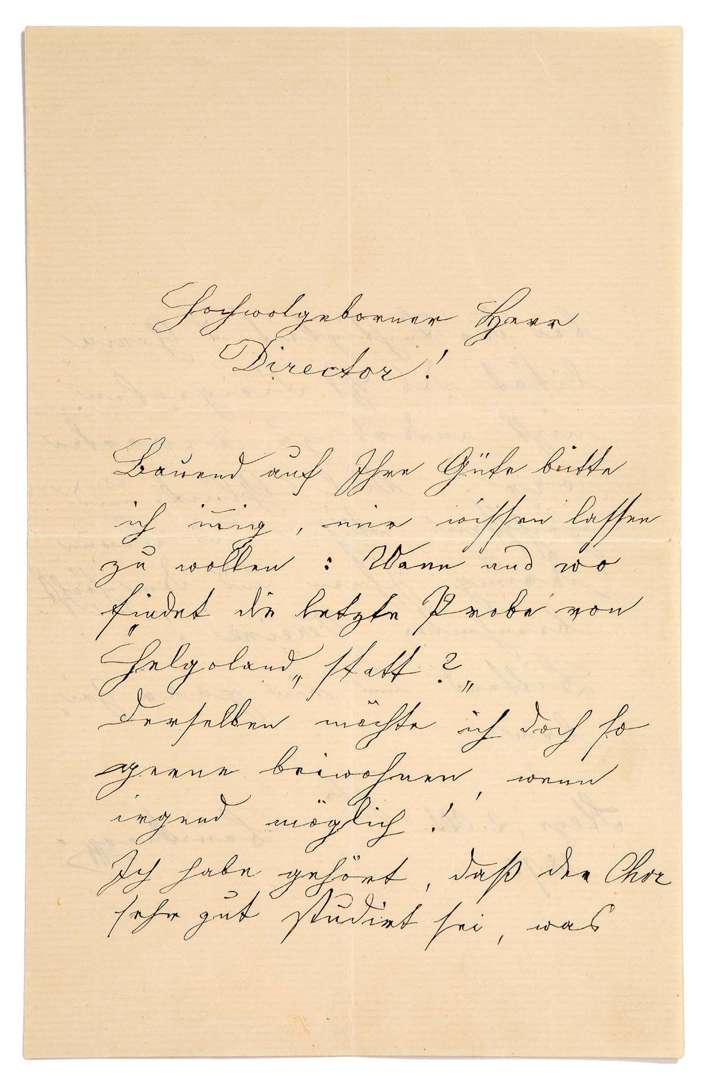 Hochwolgeborner Herr
Director!
Bauend auf Ihre Güte bitte
ich innig, mir wissen lassen
zu wollen: Wann und wo
findet die letzte Probe von
"Helgoland" statt?"
Derselben möchte ich doch so
gerne beiwohnen, wenn
irgend möglich!
Ich habe gehört, daß der Chor
sehr gut studirt sei, was